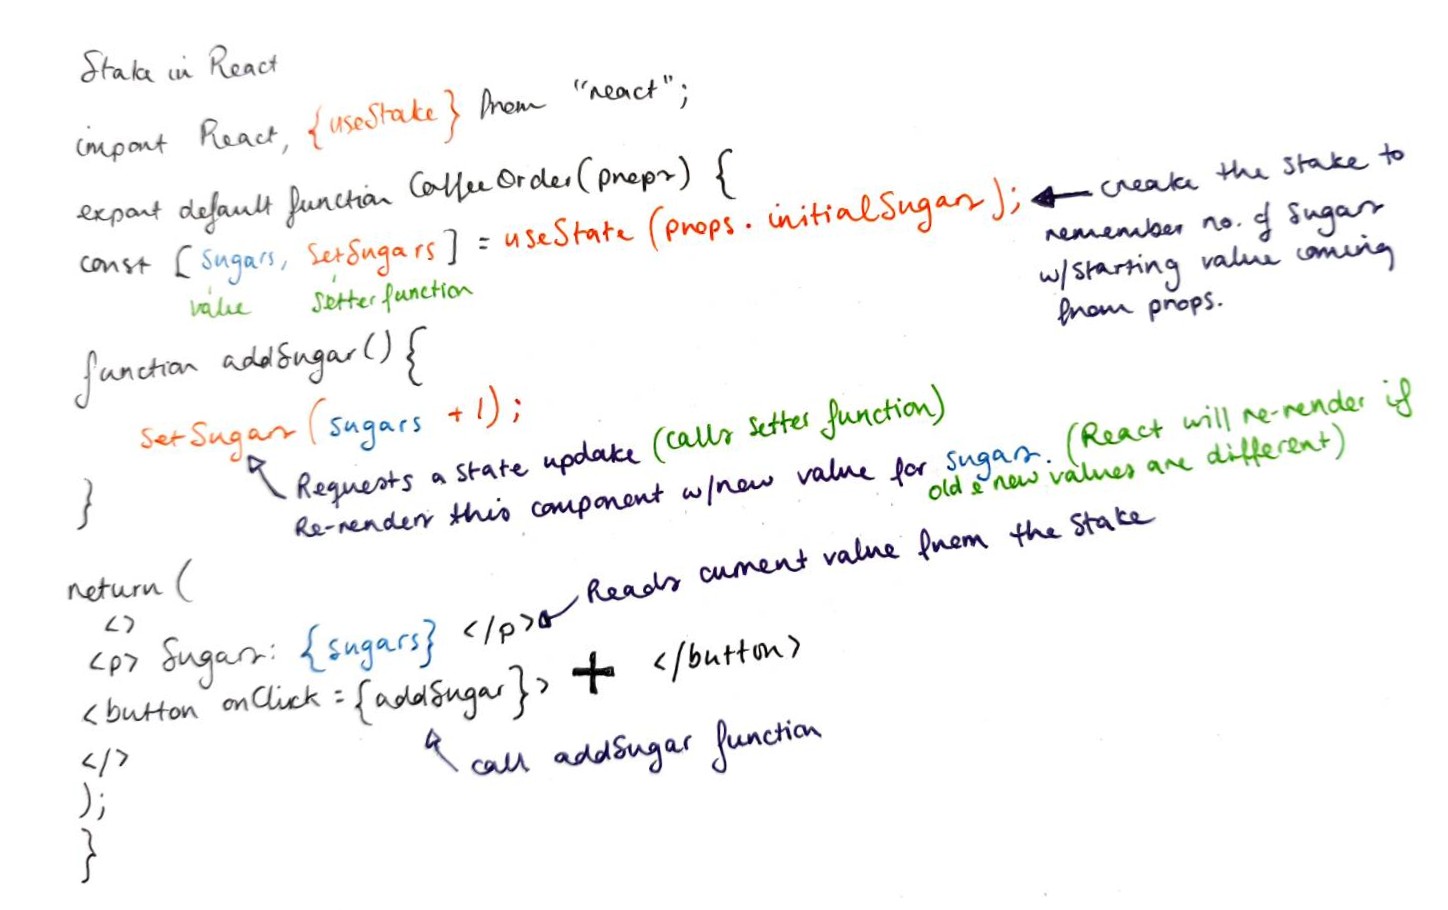 State in React
import React, {useState} from "react";
export default function CoffeeOrder(props) {
const [sugars, setSugars] = useState(props.initialSugars);
create the state to
remember no. of sugars
w/starting value coming
from props.
value
setter function
function addSugar() {
setSugars(sugars + 1);
Requests a state update (calls setter function)
Re-renders this component w/new value for sugars. (React will re-render if
old & new values are different)
}
return (
<>
<p> Sugars: {sugars} </p>
Reads current value from the state
<button onClick = {addSugar}> + </button>
call addSugar function
</>
);
}